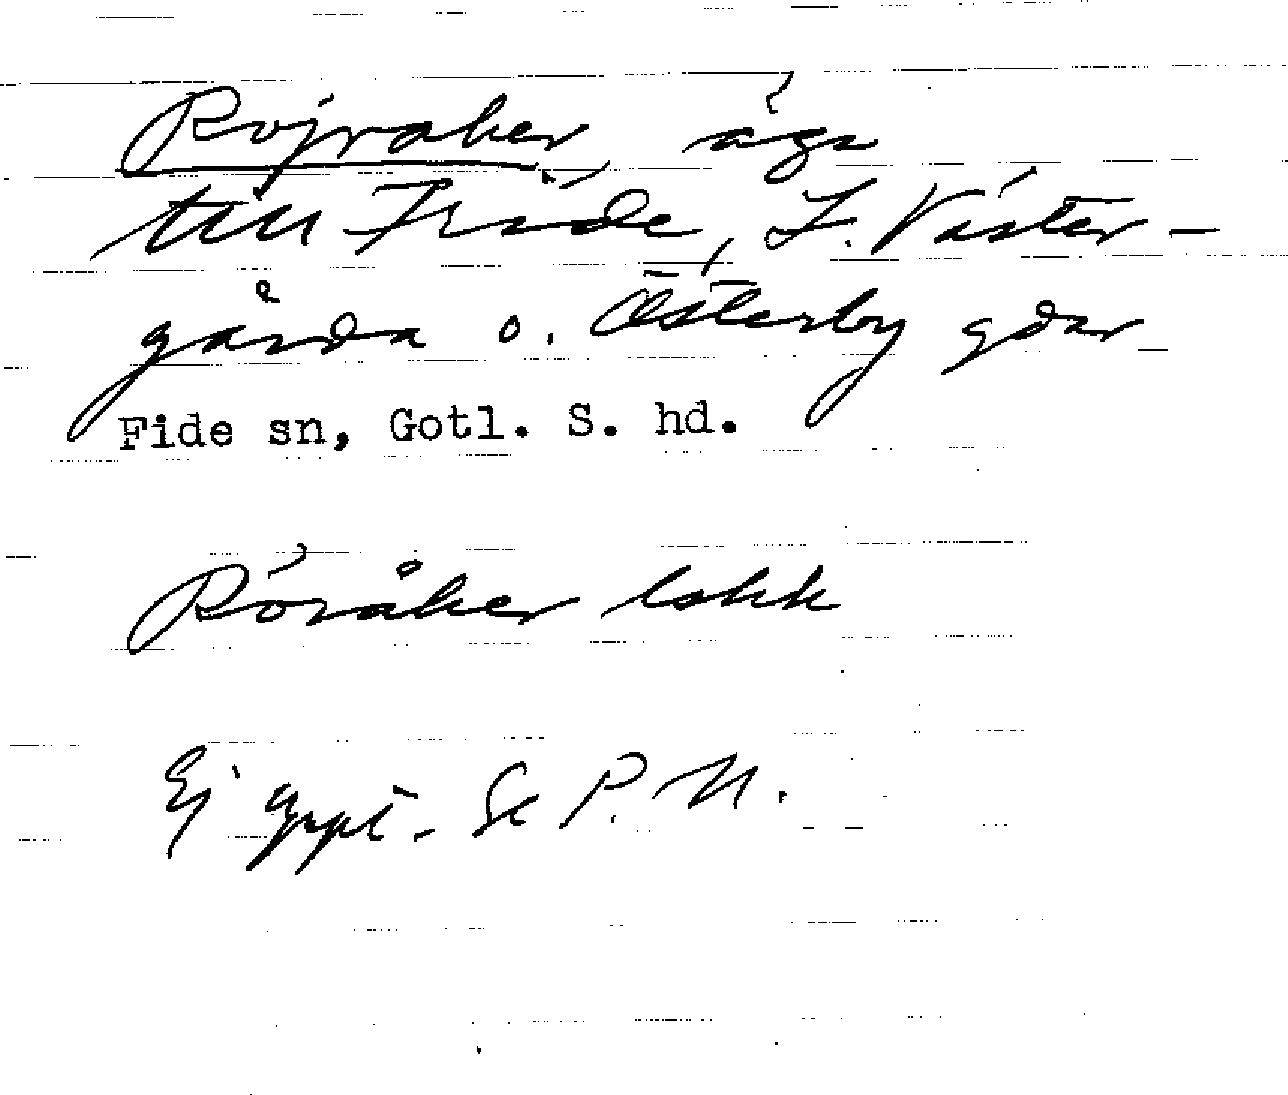 Rojraker, äga
till Fride, L. Väster-
gårda o. Österby gdar
Fide sn, Gotl. S. hd.
Röråker lokk
Ej uppt. Se P. M.